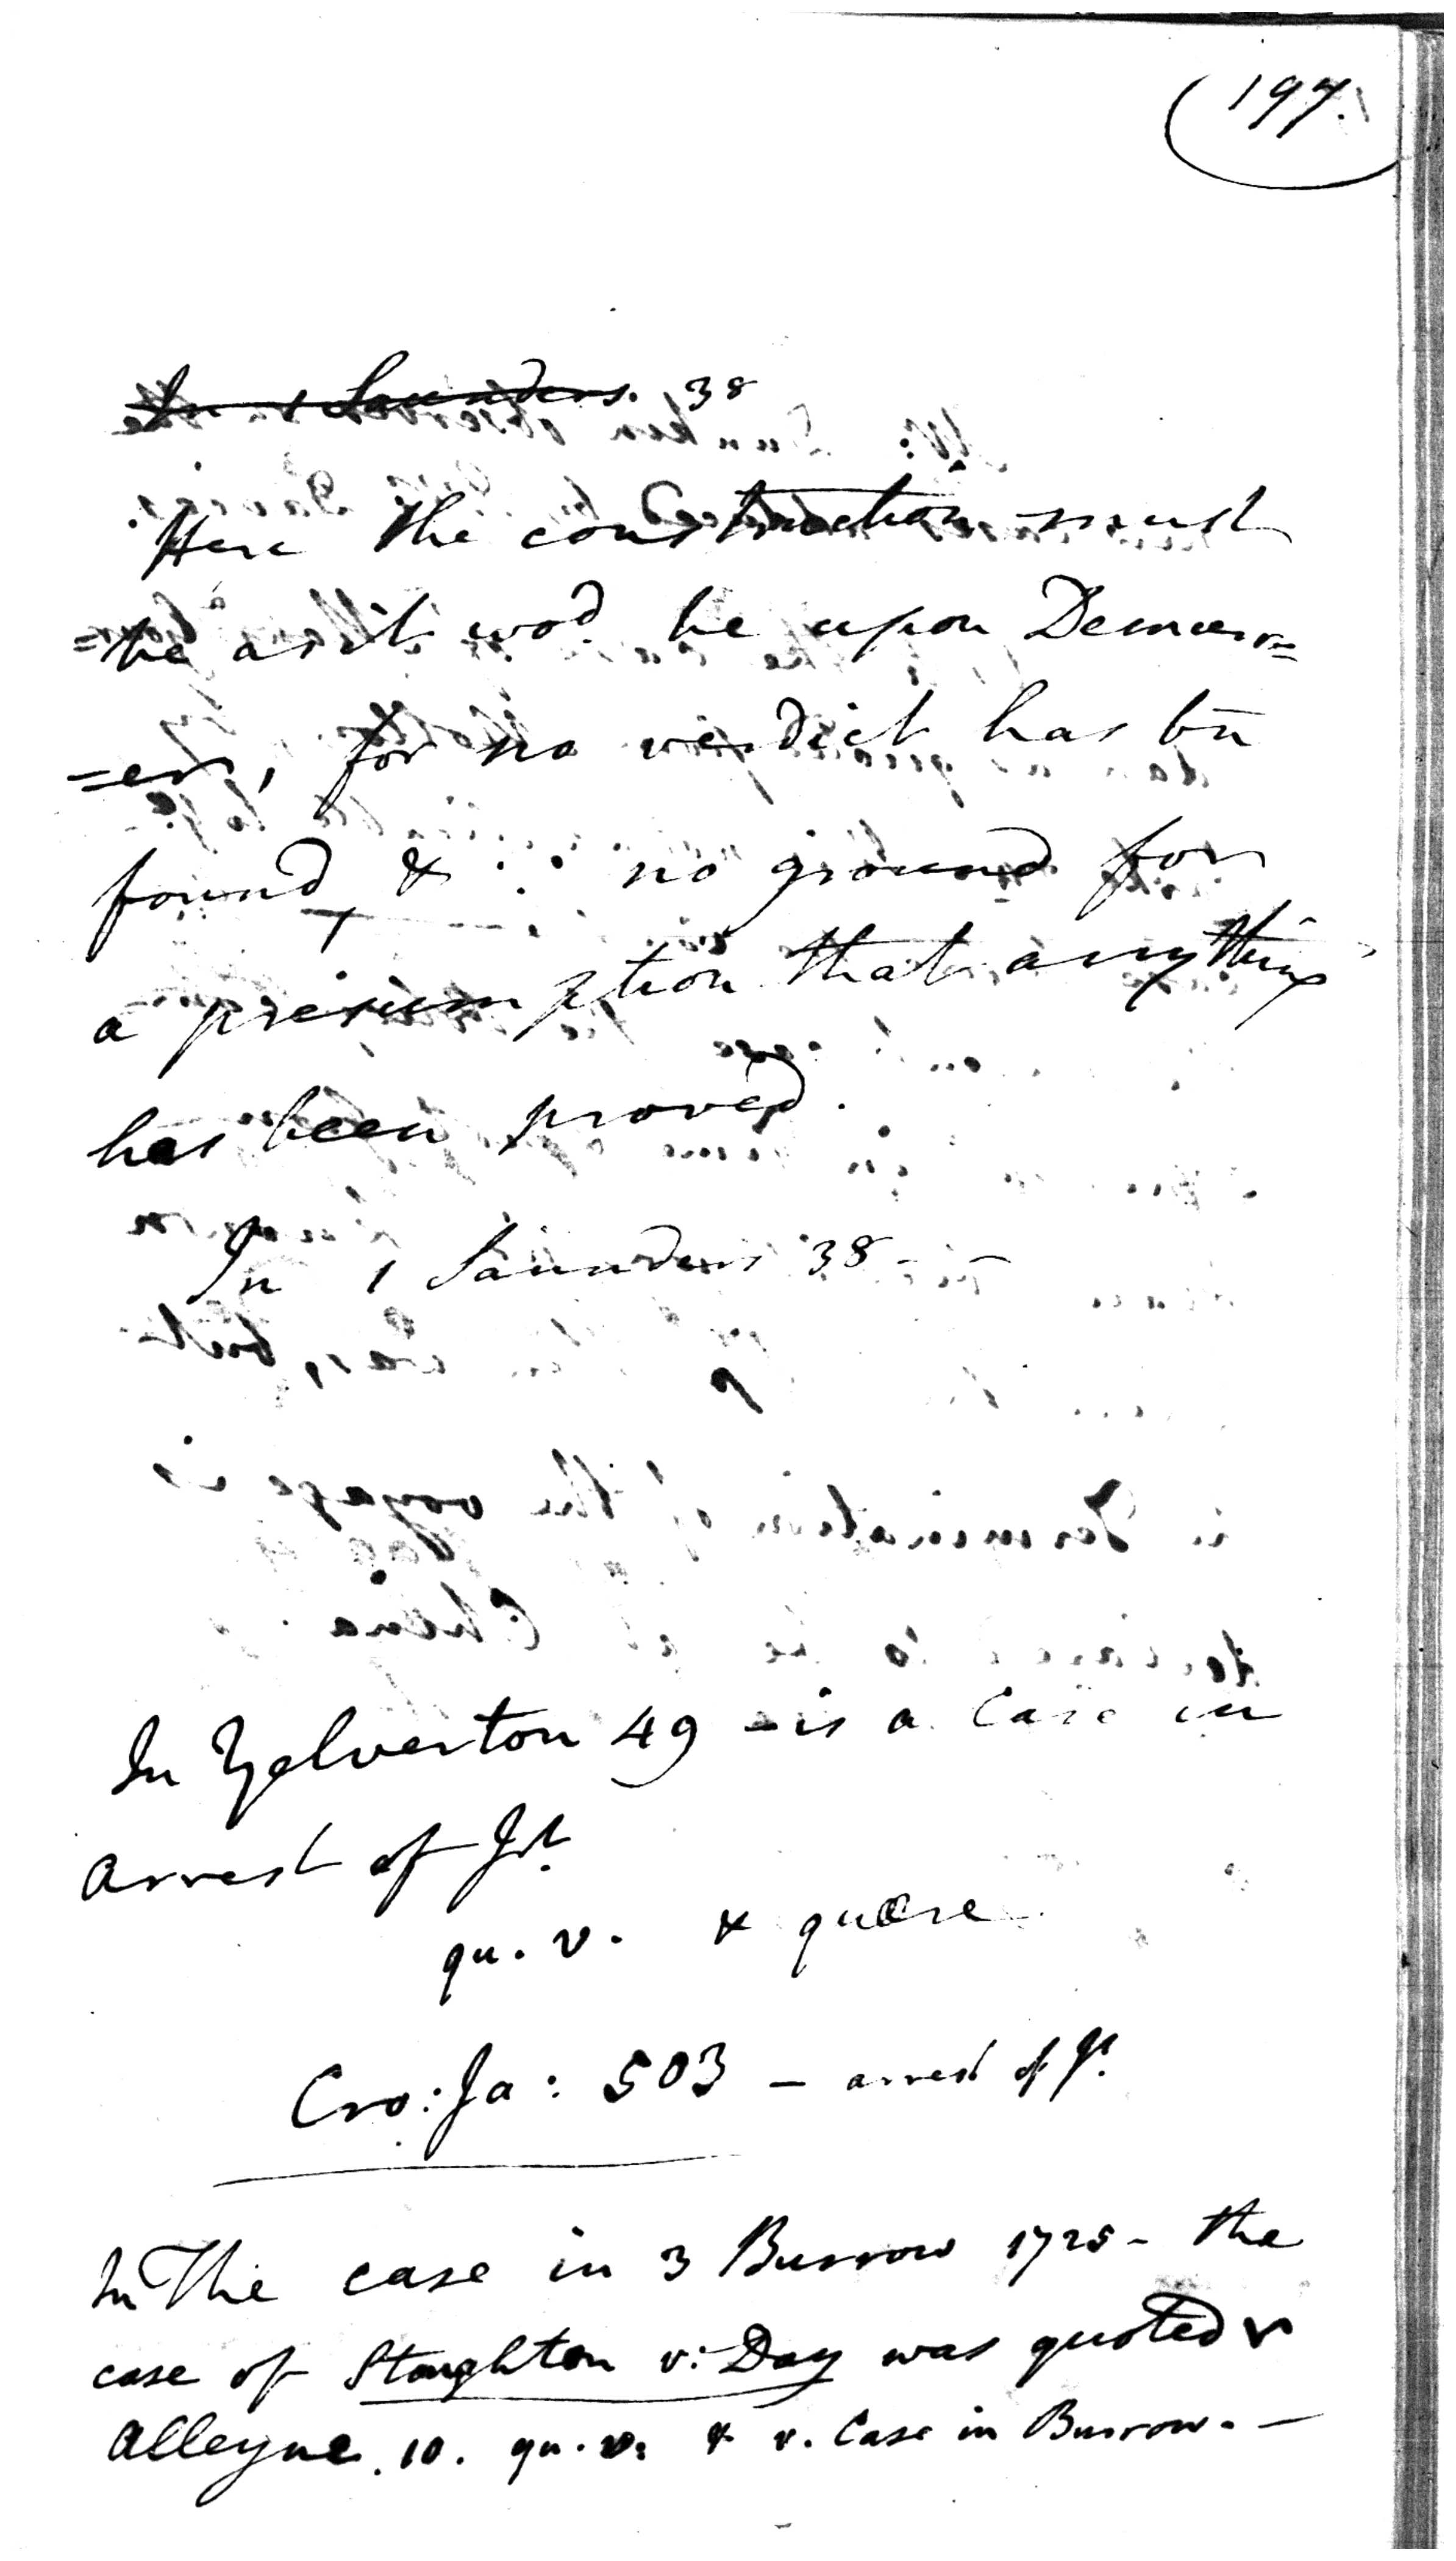 197.
In 1 Saunders. 38
Here the construction must
=be as it wod be upon Demurr=
=er, for no verdict has bn̄
found, & ∴ no ground for
a presumption that anything
has been proved.
In 1 Saunders 38 - -
In Yelverton 49 - is a Case in
arrest of Jt.
qu. v. & quære
Cro: Ja: 503 - arrest of Jt.
In The case in 3 Burrow 1725 - the
case of Stoughton v: Day was quoted v
Alleyne. 10. qu. v. & v. Case in Burrow. -